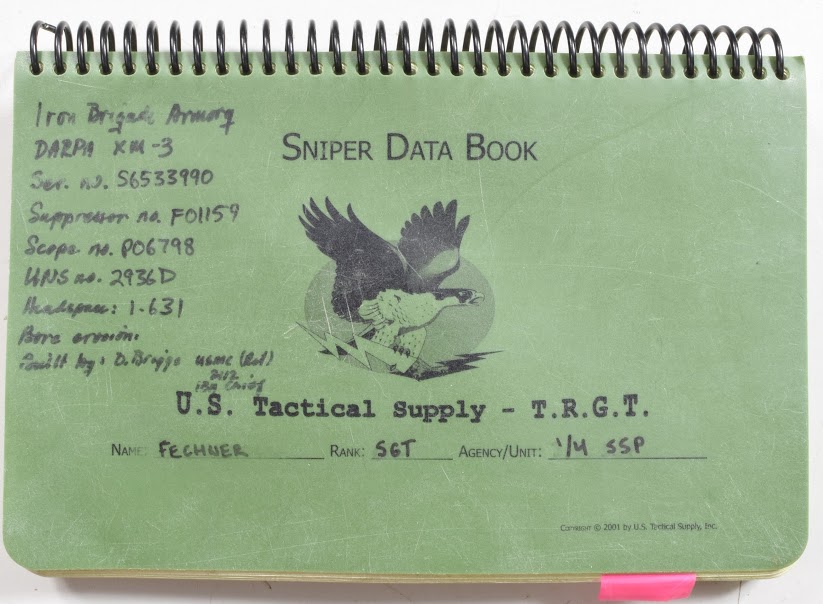 Iron Brigade Armory
DARPA XM-3
Ser. no. S6533990
Suppressor no. F01159
Scope no. P06798
UNS no. 2936D
Headspace: 1.631
Bore erosion:
Built by: D. Briggs USMC (Ret)
2112
IBA Chief
SNIPER DATA BOOK
U.S. Tactical Supply - T.R.G.T.
NAME: FECHNER RANK: SGT AGENCY/UNIT: 1/4 SSP
COPYRIGHT © 2001 by U.S. Tactical Supply, Inc.